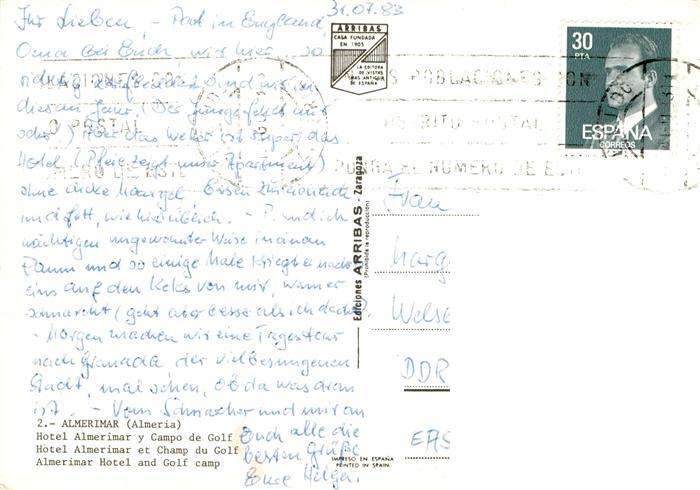 31.07.83
Ihr Lieben, - Paul in England,
Oma bei Euch, wir hier, so
diesem Jahr. (Der Junge fehlt mir
sehr!) Aber das Wetter ist super, das
Hotel (Pfeil zeigt unser Apartment)
ohne dicke Mängel. Essen
und fett, wie hierüblich. - P. und ich
nächtigen ungewohnter Weise in einem
Raum und so einige Male kriegte er nachts
eins auf den Keks von mir, wenn er
schnarcht (geht aber besser als ich dachte).
- Morgen machen wir eine Tagestour
nach Granada, der vielbesungenen
Stadt, mal sehen, ob da was dran
ist. - Vom Schnarcher und mir an
Euch alle die
besten Grüße
Eure Helga.
ARRIBAS
CASA FUNDADA
EN 1905
LA EDITORA
DE VISTAS
MAS ANTIGUA
DE ESPAÑA
30
PTA
ESPAÑA
CORREOS
POBLACIONES CON
DISTRITO POSTAL
PONGA EL NUMERO DE
Ediciones ARRIBAS - Zaragoza
(Prohibida la reproducción)
Frau
Marg
Welse
DDR
2.- ALMERIMAR (Almeria)
Hotel Almerimar y Campo de Golf
Hotel Almerimar et Champ du Golf
Almerimar Hotel and Golf camp
IMPRESO EN ESPAÑA
PRINTED IN SPAIN